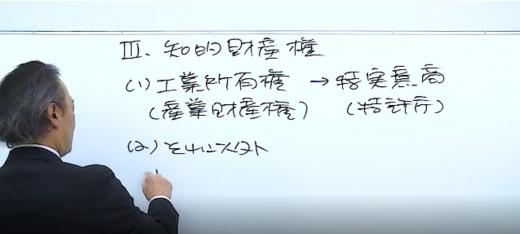 III. 知的財産権
(1) 工業所有権 → 特実意商
(産業財産権) (特許庁)
(2) それ以外